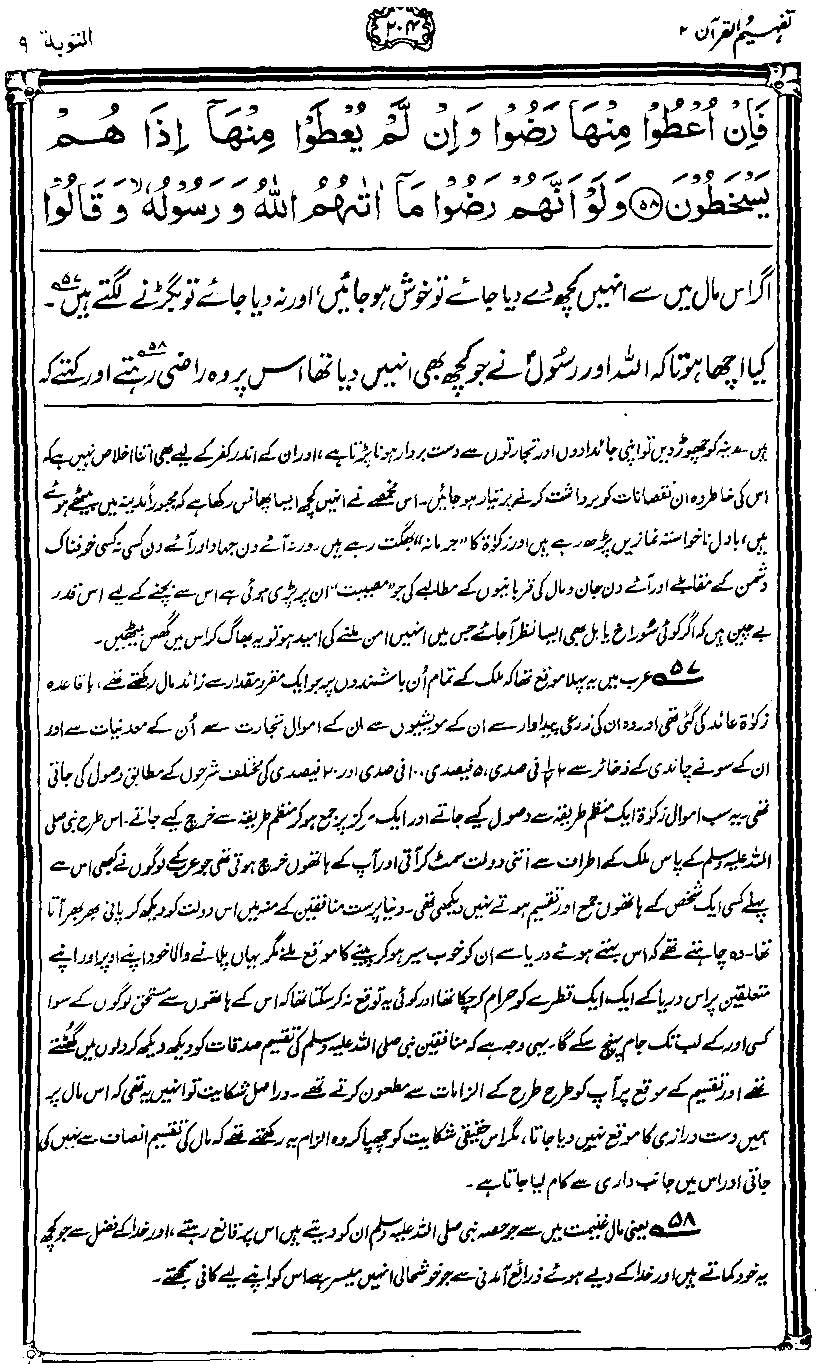 تفہیم القرآن ۲
۲۰۴
التوبۃ ۹
فَاِنْ اُعْطُوْا مِنْهَا رَضُوْا وَاِنْ لَّمْ یُعْطَوْا مِنْهَاۤ اِذَا هُمْ
یَسْخَطُوْنَ ۵۸ وَلَوْ اَنَّهُمْ رَضُوْا مَاۤ اٰتٰىهُمُ اللّٰهُ وَرَسُوْلُهٗ ۙ وَقَالُوْا
اگر اس مال میں سے انہیں کچھ دے دیا جائے تو خوش ہو جائیں، اور نہ دیا جائے تو بگڑنے لگتے ہیں ۵۷۔
کیا اچھا ہوتا کہ اللہ اور رسُولؐ نے جو کچھ بھی انہیں دیا تھا اس پر وہ راضی رہتے ۵۸ اور کہتے کہ
ہیں۔ مدینہ کو چھوڑ دیں تو اپنی جائدادوں اور تجارتوں سے دست بردار ہونا پڑتا ہے، اور ان کے اندر کفر کے لیے بھی اتنا اخلاص نہیں ہے کہ
اس کی خاطر وہ ان نقصانات کو برداشت کرنے پر تیار ہو جائیں۔ اس مخمصے نے انہیں کچھ ایسا پھانس رکھا ہے کہ مجبوراً مدینہ میں بیٹھے ہوئے
ہیں، بادل ناخواستہ نمازیں پڑھ رہے ہیں اور زکوٰۃ کا "جرمانہ" بھگت رہے ہیں۔ ورنہ آئے دن جہاد اور آئے دن کسی نہ کسی خوفناک
دشمن کے مقابلے اور آئے دن جان و مال کی قربانیوں کے مطالبے کی جو "مصیبت" ان پر پڑی ہوئی ہے اس سے بچنے کے لیے اس قدر
بے چین ہیں کہ اگر کوئی سُوراخ یا بل بھی ایسا نظر آ جائے جس میں انہیں امن ملنے کی امید ہو تو یہ بھاگ کر اس میں گھس بیٹھیں۔
۵۷ عرب میں یہ پہلا موقع تھا کہ ملک کے تمام اُن باشندوں پر جو ایک مقرر مقدار سے زائد مال رکھتے تھے، باقاعدہ
زکوٰۃ عائد کی گئی تھی اور وہ ان کی زرعی پیداوار سے ان کے مویشیوں سے ان کے اموال تجارت سے اُن کے معدنیات سے اور
ان کے سونے چاندی کے ذخائر سے ۲½ فی صدی، ۵ فیصدی، ۱۰ فی صدی اور ۲۰ فیصدی کی مختلف شرحوں کے مطابق وصول کی جاتی
تھی۔ یہ سب اموال زکوٰۃ ایک منظم طریقہ سے وصول کیے جاتے اور ایک مرکز پر جمع ہو کر منظم طریقہ سے خرچ کیے جاتے۔ اس طرح نبی صلی
اللہ علیہ وسلم کے پاس ملک کے اطراف سے اتنی دولت سمٹ کر آتی اور آپ کے ہاتھوں خرچ ہوتی تھی جو عرب کے لوگوں نے کبھی اس سے
پہلے کسی ایک شخص کے ہاتھوں جمع اور تقسیم ہوتے نہیں دیکھی تھی۔ دنیا پرست منافقین کے منہ میں اس دولت کو دیکھ کر پانی بھر بھر آتا
تھا۔ وہ چاہتے تھے کہ اس بہتے ہوئے دریا سے ان کو خوب سیر ہو کر پینے کا موقع ملے مگر یہاں پلانے والا خود اپنے اوپر اور اپنے
متعلقین پر اس دریا کے ایک ایک قطرے کو حرام کر چکا تھا اور کوئی یہ توقع نہ کر سکتا تھا کہ اس کے ہاتھوں سے مستحق لوگوں کے سوا
کسی اور کے لب تک جام پہنچ سکے گا۔ یہی وجہ ہے کہ منافقین نبی صلی اللہ علیہ وسلم کی تقسیم صدقات کو دیکھ دیکھ کر دلوں میں گھٹتے
تھے اور تقسیم کے موقع پر آپ کو طرح طرح کے الزامات سے مطعون کرتے تھے۔ دراصل شکایت تو انہیں یہ تھی کہ اس مال پر
ہمیں دست درازی کا موقع نہیں دیا جاتا، مگر اس حقیقی شکایت کو چھپا کر وہ الزام یہ رکھتے تھے کہ مال کی تقسیم انصاف سے نہیں کی
جاتی اور اس میں جانب داری سے کام لیا جاتا ہے۔
۵۸ یعنی مال غنیمت میں سے جو حصہ نبی صلی اللہ علیہ وسلم ان کو دیتے ہیں اس پر قانع رہتے، اور خدا کے فضل سے جو کچھ
یہ خود کماتے ہیں اور خدا کے دیے ہوئے ذرائع آمدنی سے جو خوشحالی انہیں میسر ہے اس کو اپنے لیے کافی سمجھتے۔